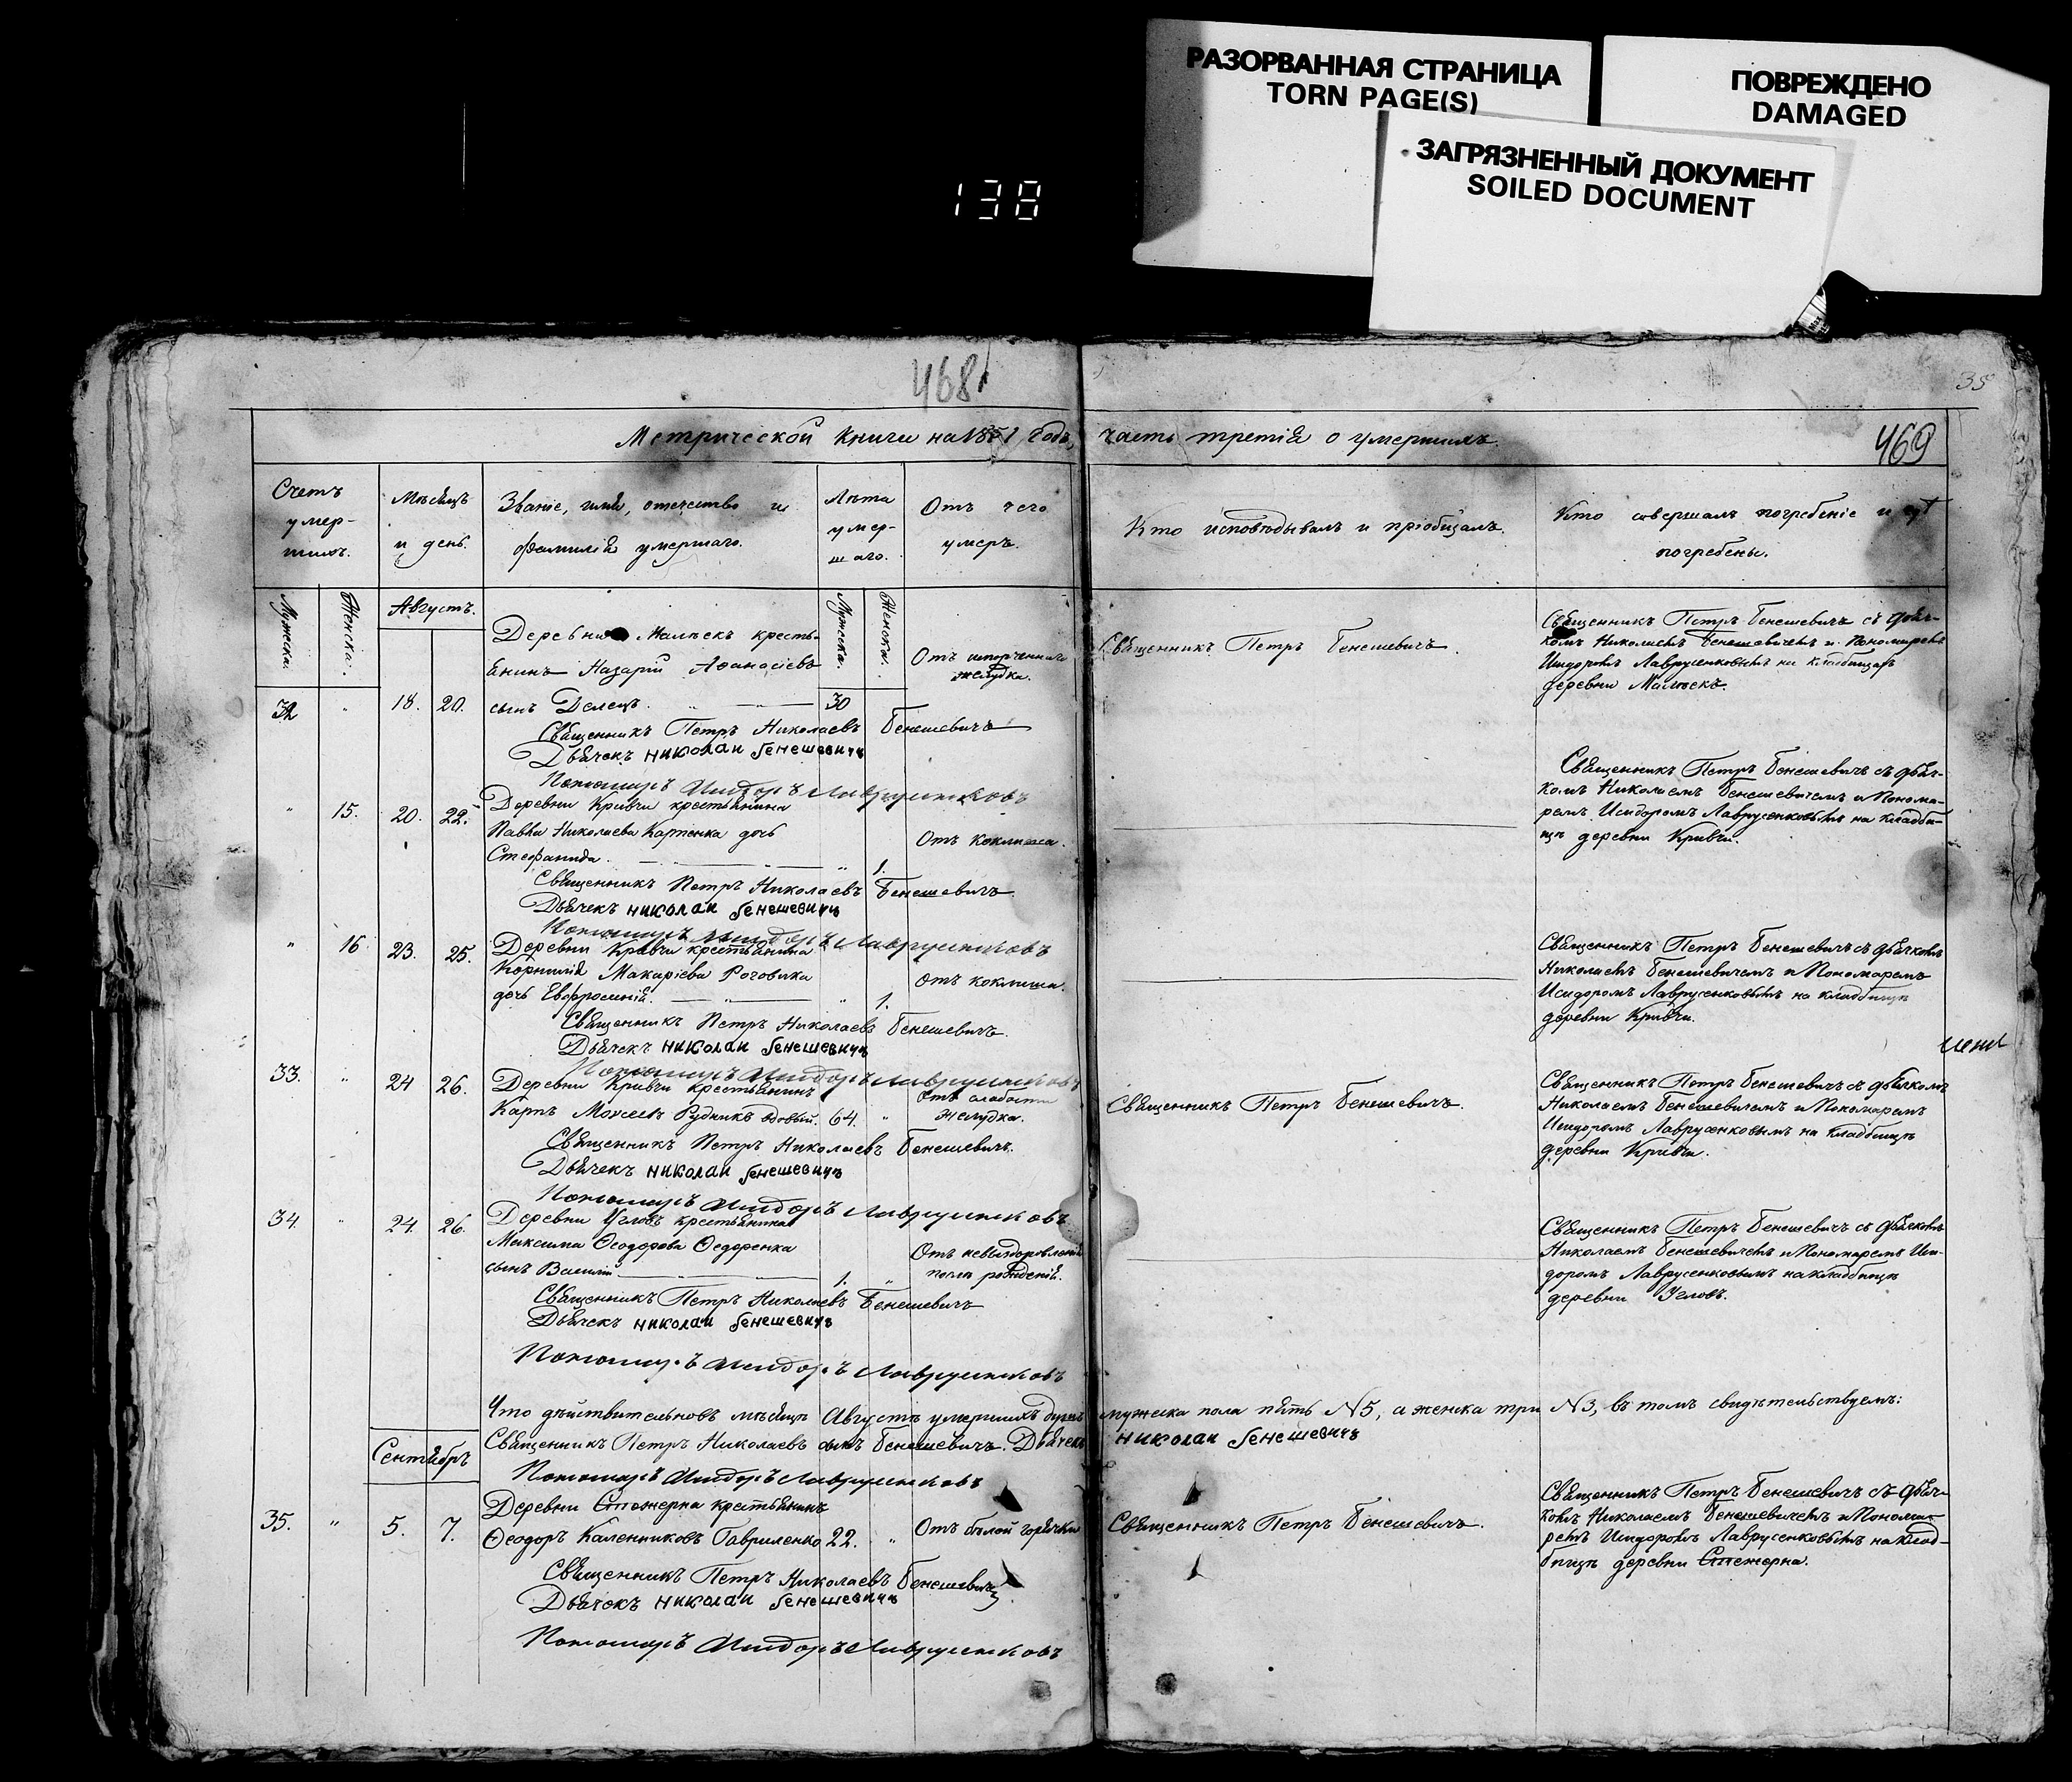 РАЗОРВАННАЯ СТРАНИЦА
TORN PAGE(S)
ПОВРЕЖДЕНО
DAMAGED
ЗАГРЯЗНЕННЫЙ ДОКУМЕНТ
SOILED DOCUMENT
138
468
35
Метрической книги на 1851 годъ, часть третія о умершихъ.
469
Счетъ умер-шихъ.
Мѣсяцъ и день.
Званіе, имя, отечество и фамилія умершаго.
Лѣта умер-шаго.
Отъ чего умеръ.
Кто исповѣдывалъ и пріобщалъ.
Кто совершалъ погребеніе и гдѣ погребены.
Мужска.
Женска.
Августъ.
Мужска.
Женска.
Деревни Мальекъ кресть-
янинъ Назарій Аѳанасіевъ
сынъ Делецъ.
32 " 18. 20.
30
Отъ испорченнаго желудка.
Священникъ Петръ Бенешевичъ.
Священникъ Петръ Бенешевичъ съ дьяч-
комъ Николаемъ Бенешевичемъ и Пономаремъ
Исидоромъ Лаврусенковымъ на кладбищѣ
деревни Мальекъ.
Священникъ Петръ Николаевъ Бенешевичъ
Дьячекъ николаи бенешевичъ
Пономарь Исидоръ Лаврусенковъ
" 15. 20. 22.
Деревни Кривчи крестьянина
Павла Николаева Карпенка дочь
Стефанида. " 1.
Отъ коклюша.
Священникъ Петръ Бенешевичъ съ дьяч-
комъ Николаемъ Бенешевичемъ и Понома-
ремъ Исидоромъ Лаврусенковымъ на кладби-
щѣ деревни Кривчи.
Священникъ Петръ Николаевъ Бенешевичъ.
Дьячекъ николаи бенешевичъ
Пономарь Исидоръ Лаврусенковъ
" 16 23. 25.
Деревни Кривчи крестьянина
Корнилія Макаріева Роговика
дочь Евфросинія. " 1.
Отъ коклюша.
Священникъ Петръ Бенешевичъ съ дьячкомъ
Николаемъ Бенешевичемъ и Пономаремъ
Исидоромъ Лаврусенковымъ на кладбищѣ
деревни Кривчи.
Священникъ Петръ Николаевъ Бенешевичъ.
Дьячекъ николаи бенешевичъ
Пономарь Исидоръ Лаврусенковъ
33. " 24 26.
Деревни Кривчи крестьянинъ
Карпъ Моисеевъ Рудникъ вдовый. 64. "
Отъ слабости желудка.
Священникъ Петръ Бенешевичъ.
Священникъ Петръ Бенешевичъ съ дьячкомъ
Николаемъ Бенешевичемъ и Пономаремъ
Исидоромъ Лаврусенковымъ на кладбищѣ
деревни Кривчи.
Священникъ Петръ Николаевъ Бенешевичъ.
Дьячекъ николаи бенешевичъ
Пономарь Исидоръ Лаврусенковъ
34. " 24. 26.
Деревни Угловъ крестьянина
Максима Ѳеодорова Ѳедоренка
сынъ Василій 1. "
Отъ невыздоровленія
послѣ рожденія.
Священникъ Петръ Бенешевичъ съ дьячкомъ
Николаемъ Бенешевичемъ и Пономаремъ Иси-
доромъ Лаврусенковымъ на кладбищѣ
деревни Угловъ.
Священникъ Петръ Николаевъ Бенешевичъ
Дьячекъ николаи бенешевичъ
Пономарь Исидоръ Лаврусенковъ
Что дѣйствительно въ мѣсяцѣ Августѣ умершихъ душъ мужеска пола пять №5, а женска три №3, въ томъ свидѣтельствуемъ:
Священникъ Петръ Николаевъ сынъ Бенешевичъ. Дьячекъ николаи бенешевичъ
Пономарь Исидоръ Лаврусенковъ
Сентябрь
35. " 5. 7.
Деревни Стежерна крестьянинъ
Ѳеодоръ Каленниковъ Гавриленко 22. "
Отъ бѣлой горячки
Священникъ Петръ Бенешевичъ.
Священникъ Петръ Бенешевичъ съ дьяч-
комъ Николаемъ Бенешевичемъ и Понома-
ремъ Исидоромъ Лаврусенковымъ на клад-
бищѣ деревни Стежерна.
Священникъ Петръ Николаевъ Бенешевичъ
Дьячекъ николаи бенешевичъ
Пономарь Исидоръ Лаврусенковъ